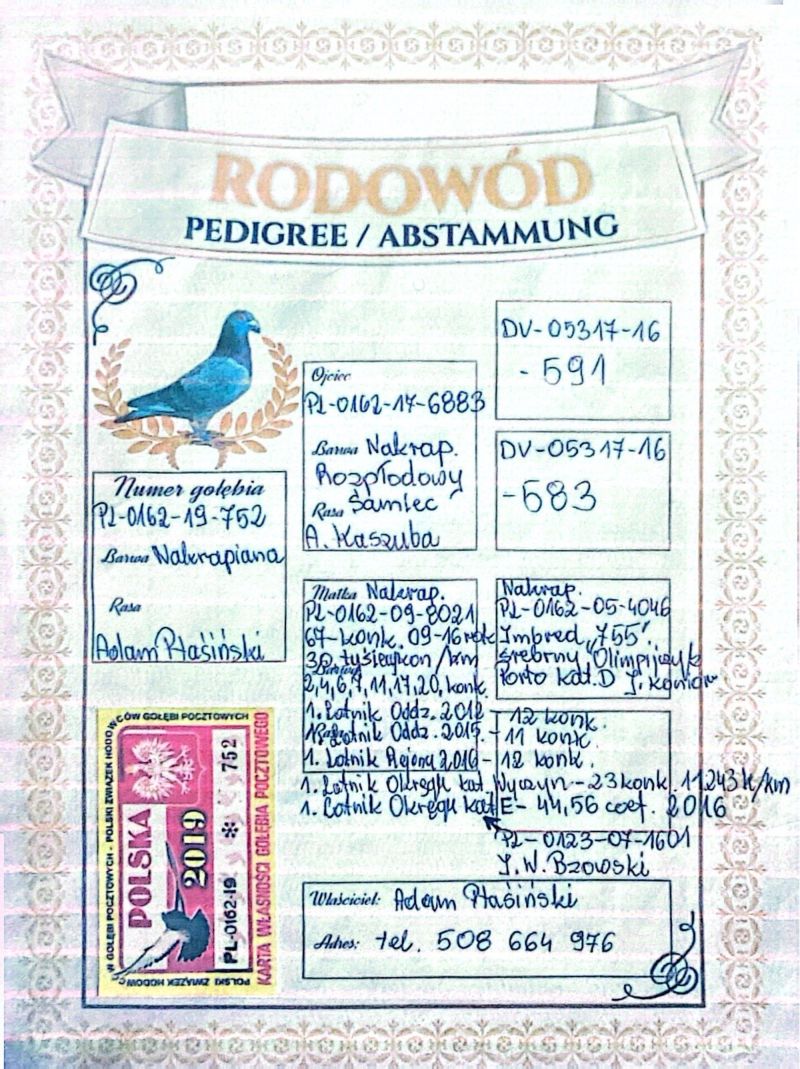 RODOWÓD
PEDIGREE / ABSTAMMUNG
Numer gołębia
PL-0162-19-752
Barwa Nakrapiana
Rasa
Adam Ptasiński
Ojciec
PL-0162-17-6883
Barwa Nakrap.
Rozpłodowy
Rasa Samiec
A. Kaszuba
DV-05317-16
-591
DV-05317-16
-583
Matka Nakrap.
PL-0162-09-8021
67-konk. 09-16 rok
30 tysięcy kon/km
Barwa
2,4,6,7,11,17,20, konk.
1. Lotnik Oddz. 2012 - 12 konk.
1. Lotnik Oddz. 2015. - 11 konk.
1. Lotnik Rejonu 2016 - 12 konk.
1. Lotnik Okręgu kat. Wyczyn - 23 konk. 11243 k/km
1. Lotnik Okręgu kat E - 44,56 coef. 2016
Nakrap.
PL-0162-05-4046
Imbred "755".
srebrny "Olimpijczyk
Porto kat. D J. Konior
PL-0123-07-1601
J. W. Bzowski
Właściciel: Adam Ptasiński
Adres: tel. 508 664 976
POLSKI ZWIĄZEK HODOWCÓW GOŁĘBI POCZTOWYCH
POLSKA
2019
PL-0162-19 * 752
KARTA WŁASNOŚCI GOŁĘBIA POCZTOWEGO